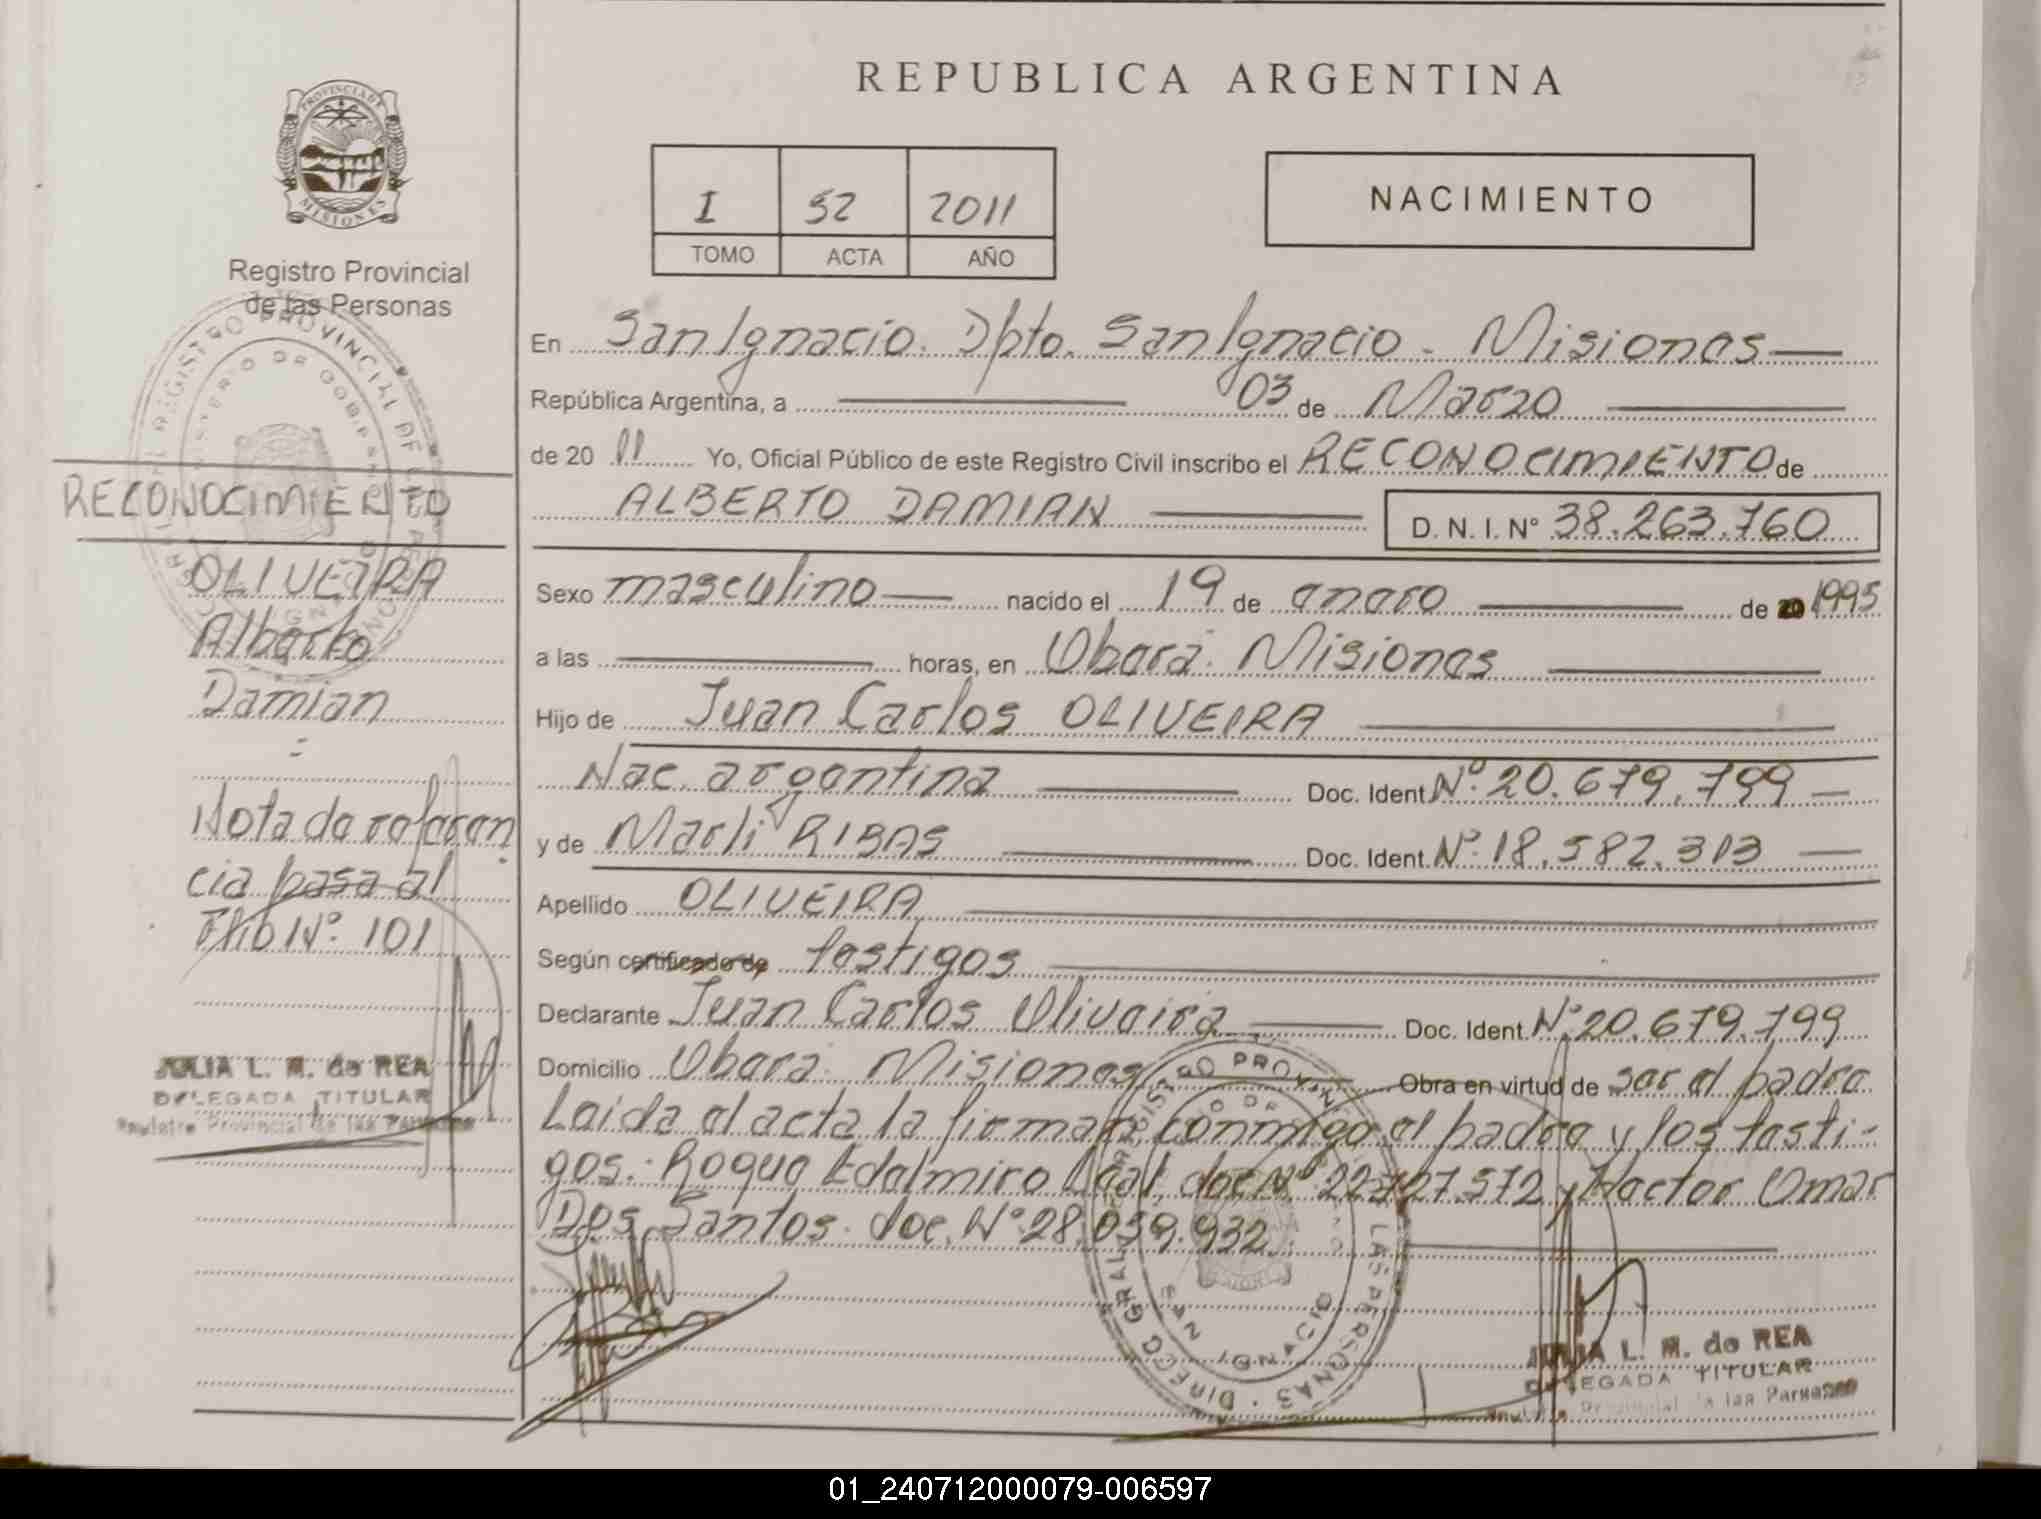 REPUBLICA ARGENTINA
PROVINCIA DE
MISIONES
Registro Provincial
de las Personas
I 52 2011
TOMO ACTA AÑO
NACIMIENTO
En San Ignacio. Dpto. San Ignacio - Misiones
República Argentina, a 03 de Marzo
de 20 11 Yo, Oficial Público de este Registro Civil inscribo el RECONOCIMIENTO de
ALBERTO DAMIAN D.N.I. Nº 38.263.760
Sexo masculino nacido el 19 de enero de 20 1995
a las horas, en Oberá. Misiones
Hijo de Juan Carlos OLIVEIRA
Nac. argentina Doc. Ident. Nº. 20.679.799
y de Marli RIBAS Doc. Ident. Nº. 18.582.313
Apellido OLIVEIRA
Según certificado de testigos
Declarante Juan Carlos Oliveira Doc. Ident. Nº. 20.679.799
Domicilio Oberá. Misiones Obra en virtud de ser el padre
Leida el acta la firman conmigo el padre y los testi-
gos: Roque Edelmiro Leal, doc Nº 22.727.572 y Hector Omar
Dos Santos. doc. Nº. 28.059.932.
RECONOCIMIENTO
OLIVEIRA
Alberto
Damian
Nota de referen
cia pasa al
Flio Nº. 101
JULIA L. M. de REA
DELEGADA TITULAR
Registro Provincial de las Personas
JULIA L. M. de REA
DELEGADA TITULAR
Registro Provincial de las Personas
01_240712000079-006597